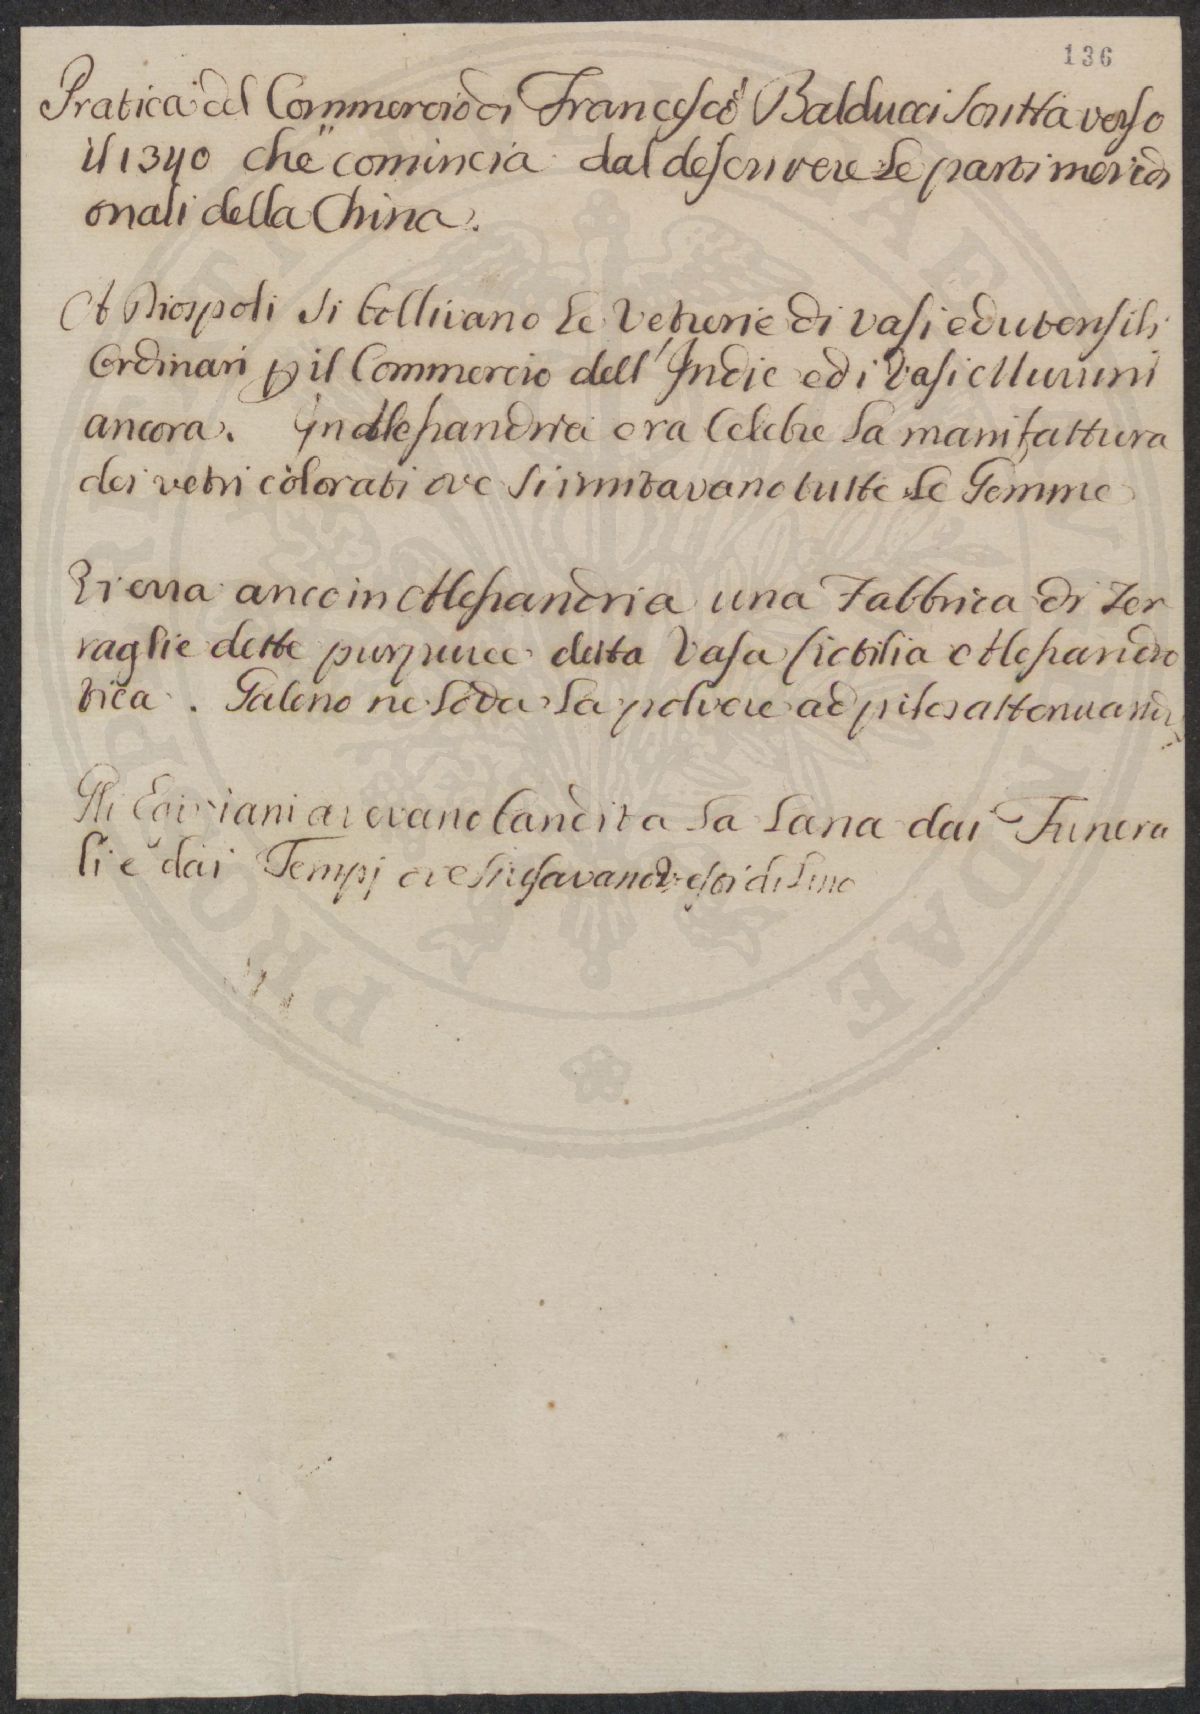 136
Pratica del Commercio di Francesco Balducci scritta verso
il 1340 che comincia dal descrivere le parti meridi
onali della China.
A Diospoli si collivano le Vetrerie di vasi ed utensili
Ordinari p il Commercio dell' Indie ed i Vasi Murrini
ancora. In Alesandria era celebre la manifattura
dei vetri colorati ove si imitavano tutte le Gemme
Vi erra anco in Alesandria una Fabbrica di Ter
raglie dette purpuree detta Vasa fictilia Alesandro
tica. Galeno ne loda la polvere ad pilos attenuand
Gli Egiziani avevano bandita la Lana dai Funera
li e dai Tempj ove si usavano Vesti di Lino